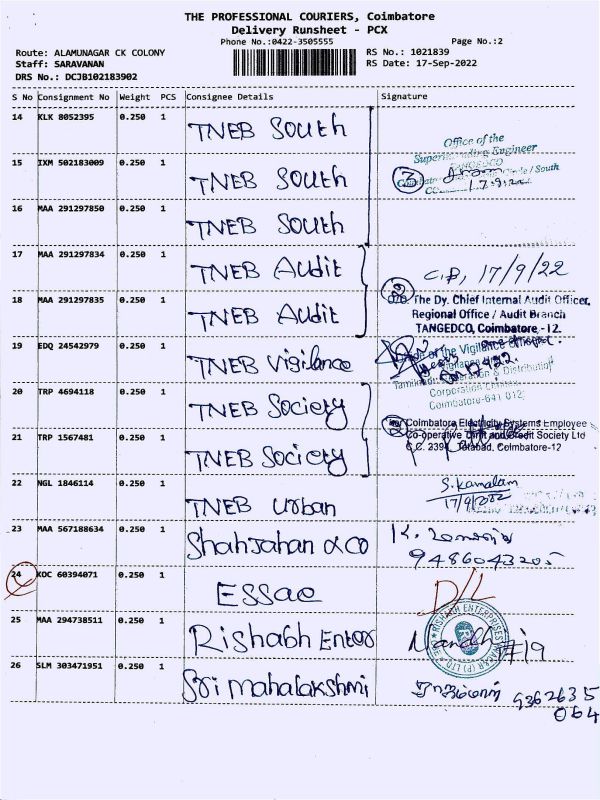 THE PROFESSIONAL COURIERS, Coimbatore
Delivery Runsheet - PCX
Phone No.:0422-3505555
Page No.:2
Route: ALAMUNAGAR CK COLONY
RS No.: 1021839
Staff: SARAVANAN
RS Date: 17-Sep-2022
DRS No.: DCJB102183902
S No Consignment No Weight PCS Consignee Details Signature
14 KLK 8052395 0.250 1 TNEB South
Office of the
Superintending Engineer
TANGEDCO
Circle / South
3
17.9.22
15 IXM 502183009 0.250 1 TNEB South
16 MAA 291297850 0.250 1 TNEB South
17 MAA 291297834 0.250 1 TNEB Audit
C.B, 17/9/22
18 MAA 291297835 0.250 1 TNEB Audit
2
O/o. The Dy. Chief Internal Audit Officer,
Regional Office / Audit Branch
TANGEDCO, Coimbatore -12.
19 EDQ 24542979 0.250 1 TNEB Vigilance
of the Vigilance
Tamilnadu Generation & Distribution
Corporation Limited
Coimbatore-641 012.
20 TRP 4694118 0.250 1 TNEB Society
For Coimbatore Electricity Systems Employee
Co-operative Thrift and Credit Society Ltd
C.C. 2394, Tatabad, Coimbatore-12
21 TRP 1567481 0.250 1 TNEB Society
22 NGL 1846114 0.250 1 TNEB Urban
S. Kamalam
17/9/2022
23 MAA 567188634 0.250 1 Shahjahan & Co
K.
9486043205
24 KDC 60394071 0.250 1 ESSae
D/L
25 MAA 294738511 0.250 1 Rishabh Enter
RISHABH ENTERPRISES
26 SLM 303471951 0.250 1 Sri mahalakshmi
9362635
064